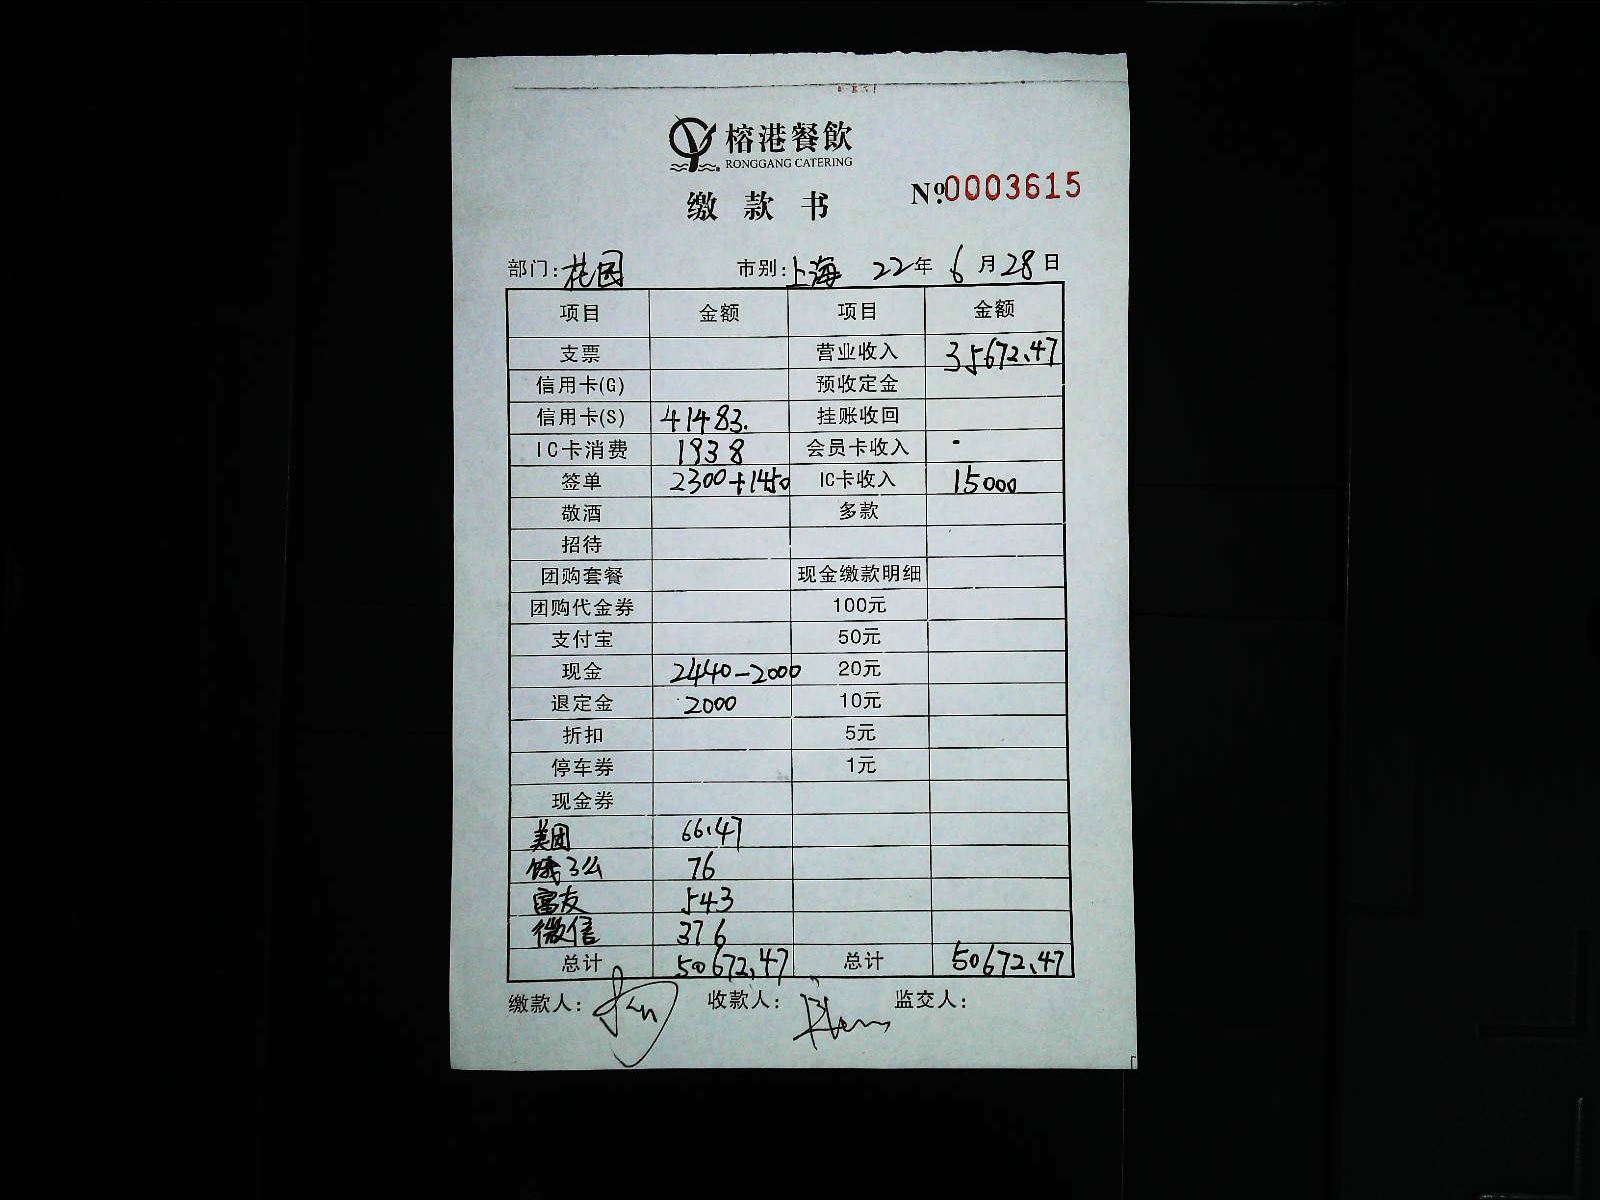 榕港餐飲
RONGGANG CATERING
缴款书
№:0003615
部门: 花园 市别: 上海 22年 6月 28日
项目 金额 项目 金额
支票 营业收入 35672.47
信用卡(G) 预收定金
信用卡(S) 41483. 挂账收回
IC卡消费 1938 会员卡收入 -
签单 2300+1450 IC卡收入 15000
敬酒 多款
招待
团购套餐 现金缴款明细
团购代金券 100元
支付宝 50元
现金 2440-2000 20元
退定金 2000 10元
折扣 5元
停车券 1元
现金券
美团 66.47
饿了么 76
富友 543
微信 376
总计 50672.47 总计 50672.47
缴款人: 收款人: 监交人: